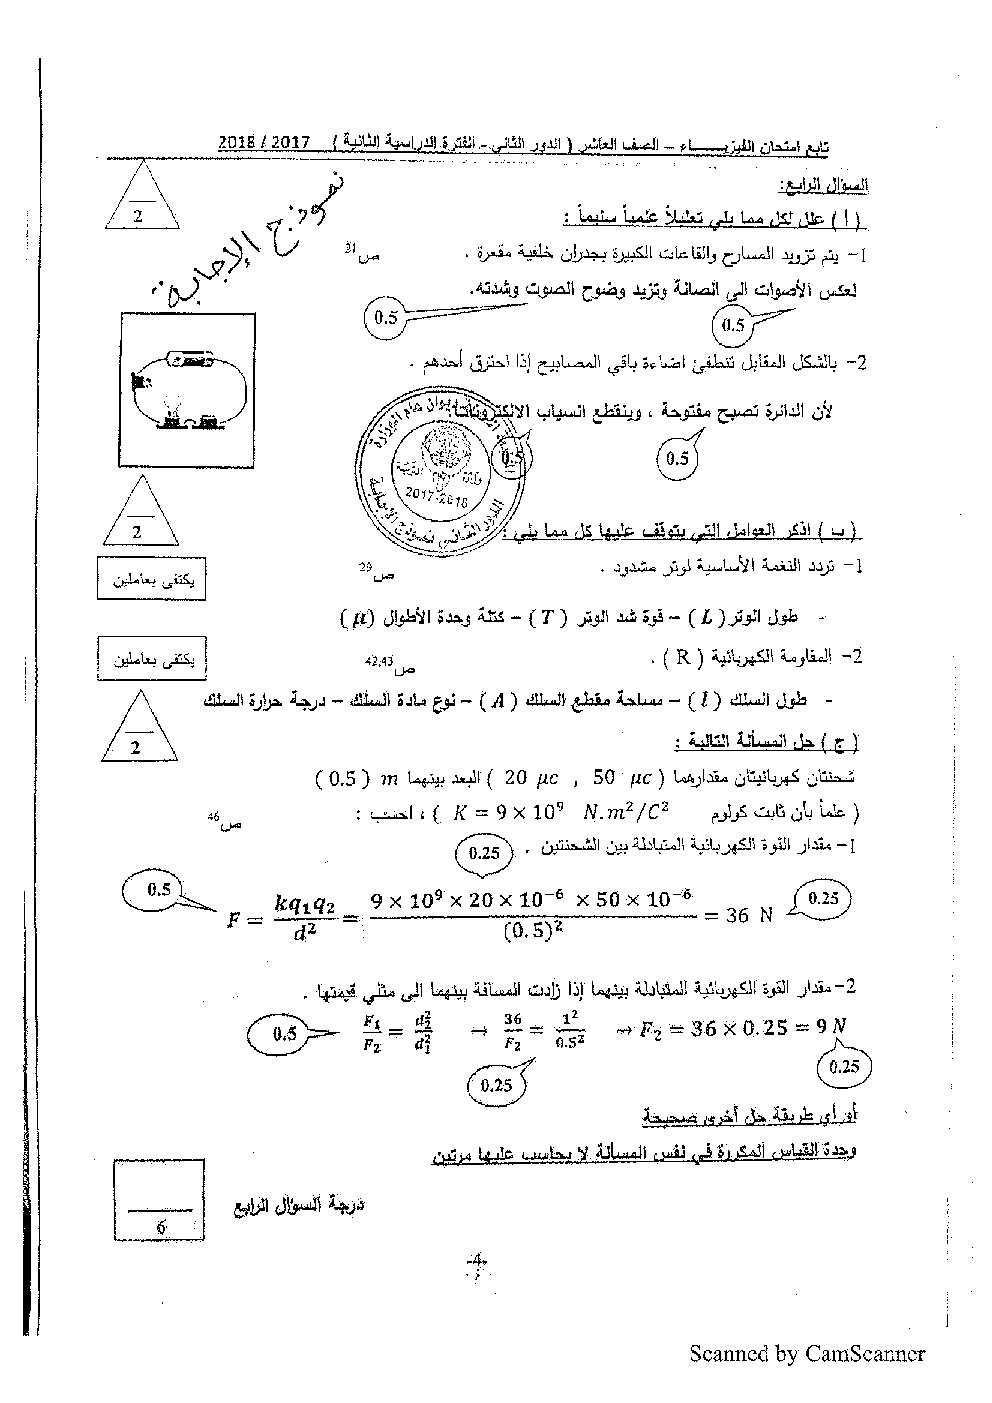 تابع امتحان الفيزيـــــاء – الصف العاشر ( الدور الثاني - الفترة الدراسية الثانية ) 2017 / 2018
السؤال الرابع:
2
نموذج الإجابة
( أ ) علل لكل مما يلي تعليلاً علمياً سليماً :
1- يتم تزويد المسارح والقاعات الكبيرة بجدران خلفية مقعرة . ص31
لعكس الأصوات الى الصالة وتزيد وضوح الصوت وشدته.
0.5
0.5
2- بالشكل المقابل تنطفئ اضاءة باقي المصابيح إذا احترق أحدهم .
لأن الدائرة تصبح مفتوحة ، وينقطع انسياب الالكترونات.
0.5
0.5
2017-2018
الدور الثاني نموذج الإجابة
2
( ب ) اذكر العوامل التي يتوقف عليها كل مما يلي :
1- تردد النغمة الأساسية لوتر مشدود . ص29
يكتفى بعاملين
- طول الوتر ( L ) – قوة شد الوتر ( T ) – كتلة وحدة الأطوال (μ)
2- المقاومة الكهربائية ( R ) . ص42,43
يكتفى بعاملين
- طول السلك ( l ) – مساحة مقطع السلك ( A ) – نوع مادة السلك – درجة حرارة السلك
2
( ج ) حل المسألة التالية :
شحنتان كهربائيتان مقدارهما ( 20 μc , 50 μc ) البعد بينهما m ( 0.5 )
( علماً بأن ثابت كولوم K = 9 × 10⁹ N.m²/C² ) ، احسب : ص46
1- مقدار القوة الكهربائية المتبادلة بين الشحنتين .
0.25
0.5
F = kq₁q₂/d² = 9 × 10⁹ × 20 × 10⁻⁶ × 50 × 10⁻⁶/(0.5)² = 36 N
0.25
2- مقدار القوة الكهربائية المتبادلة بينهما إذا زادت المسافة بينهما الى مثلي قيمتها .
0.5
F₁/F₂ = d₂²/d₁² → 36/F₂ = 1²/0.5² → F₂ = 36 × 0.25 = 9 N
0.25
0.25
أو أي طريقة حل أخرى صحيحة
وحدة القياس المكررة في نفس المسألة لا يحاسب عليها مرتين
درجة السؤال الرابع
6
-4-
Scanned by CamScanner